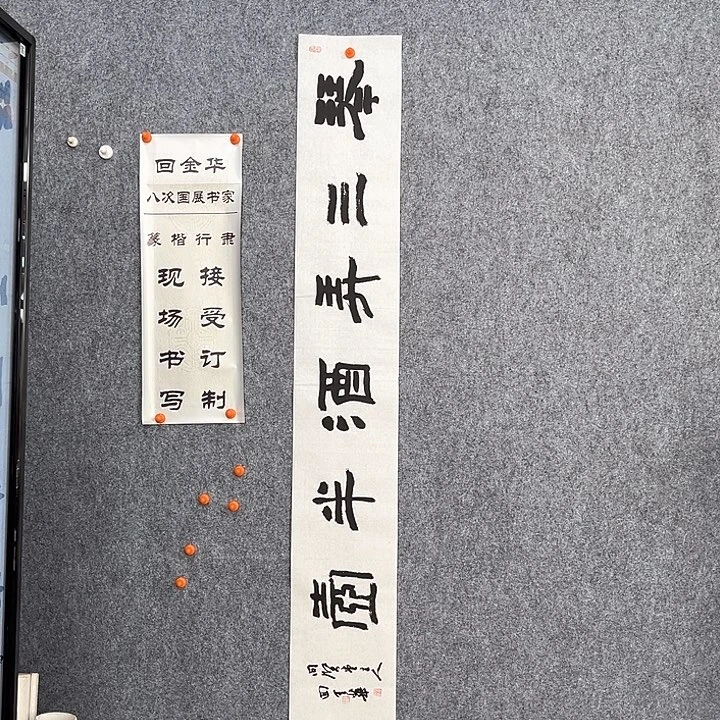 回金华
八次国展书家
篆楷行隶
现场书写
接受订制
琴三弄酒半壺